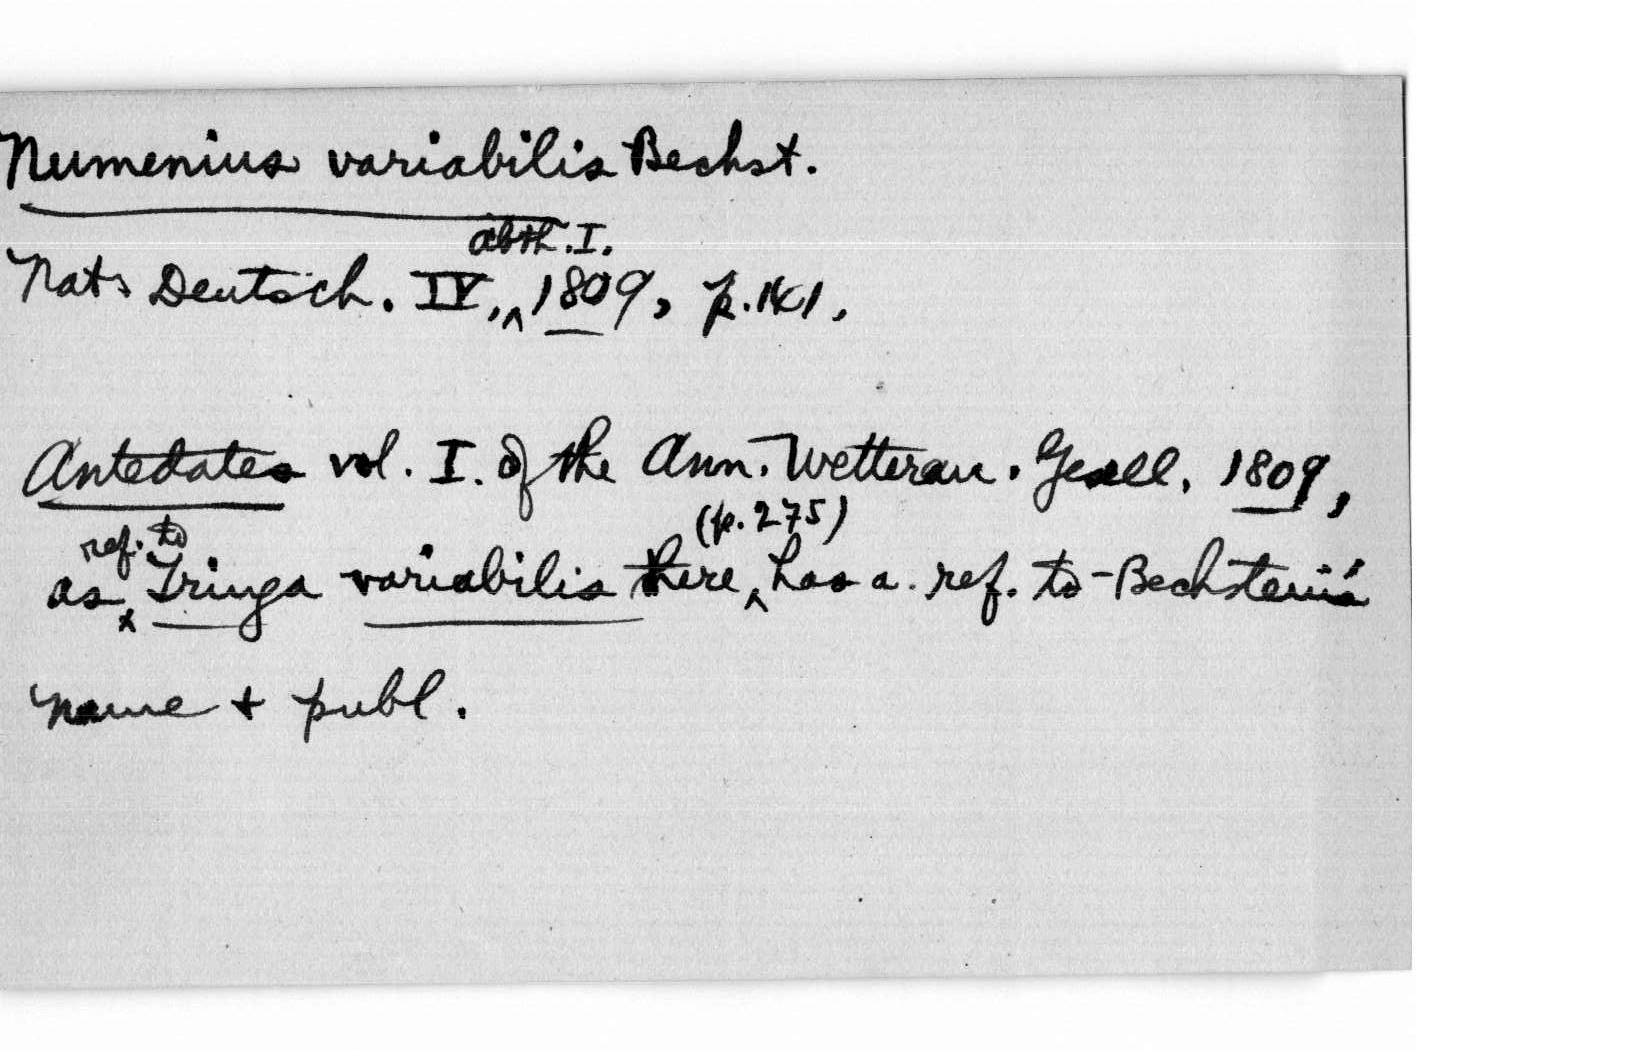 Numenius variabilis Bechst.
abth. I.
Nat. Deutsch. IV, ^ 1809, p. 141.
Antedates vol. I. of the Ann. Wetterau. Gesell. 1809,
ref. to (p. 275)
as ^ Tringa variabilis there ^ has a ref. to Bechstein's
name + publ.